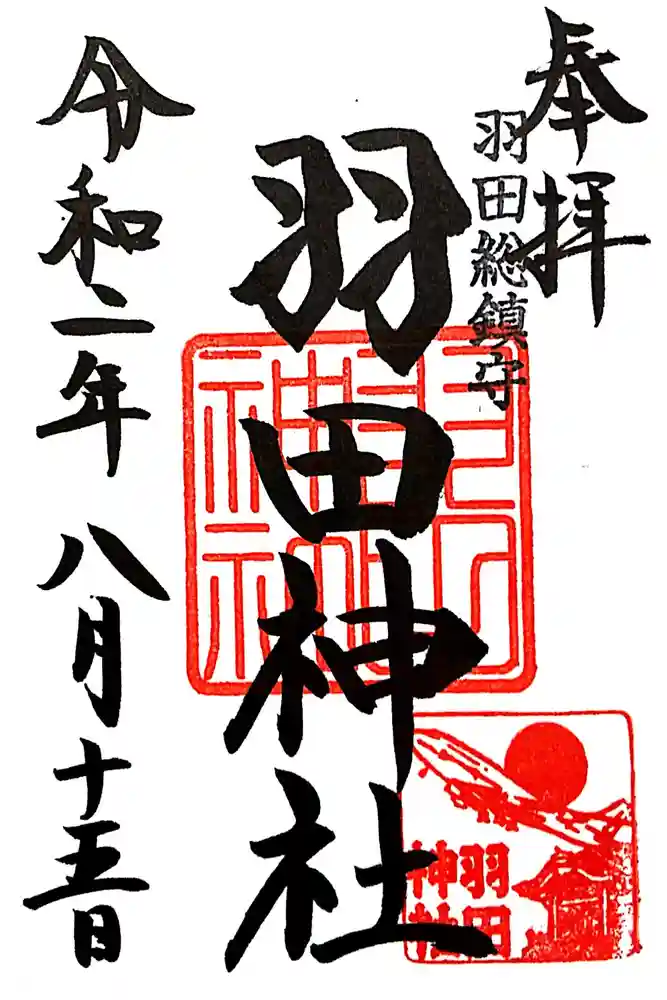 奉拝
羽田総鎮守
羽田神社
令和二年八月十五日
羽田
神社